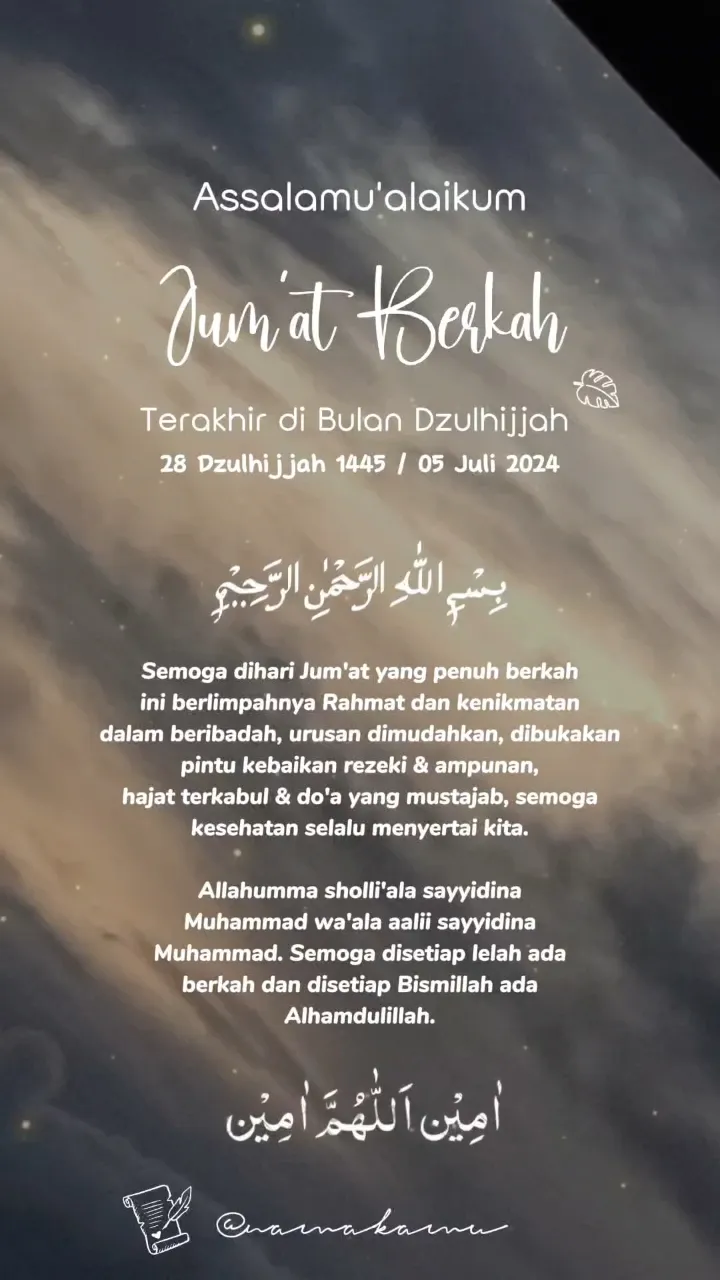 Assalamu'alaikum
Jum'at Berkah
Terakhir di Bulan Dzulhijjah
28 Dzulhijjah 1445 / 05 Juli 2024
بِسْمِ اللّٰهِ الرَّحْمٰنِ الرَّحِيْمِ
Semoga dihari Jum'at yang penuh berkah
ini berlimpahnya Rahmat dan kenikmatan
dalam beribadah, urusan dimudahkan, dibukakan
pintu kebaikan rezeki & ampunan,
hajat terkabul & do'a yang mustajab, semoga
kesehatan selalu menyertai kita.
Allahumma sholli'ala sayyidina
Muhammad wa'ala aalii sayyidina
Muhammad. Semoga disetiap lelah ada
berkah dan disetiap Bismillah ada
Alhamdulillah.
اٰمِيْن اَللّٰهُمَّ اٰمِيْن
@namakamu